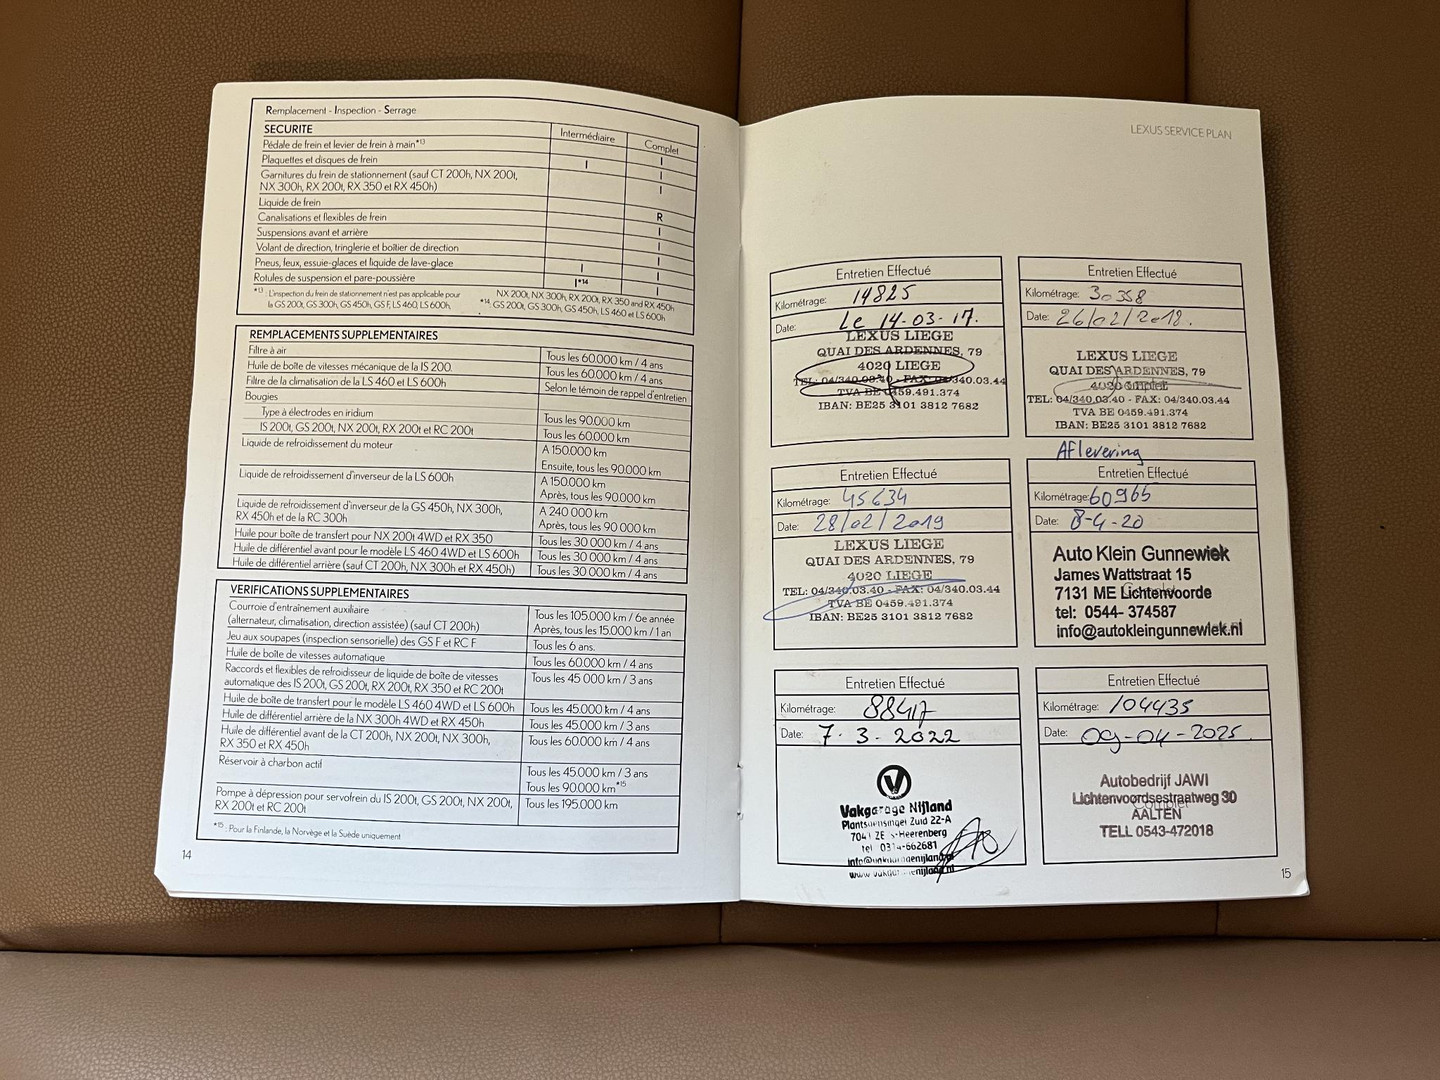 Remplacement - Inspection - Serrage
SECURITE
Intermédiaire
Complet
Pédale de frein et levier de frein à main*13
I
Plaquettes et disques de frein
I
I
Garnitures du frein de stationnement (sauf CT 200h, NX 200t,
NX 300h, RX 200t, RX 350 et RX 450h)
I
Liquide de frein
R
Canalisations et flexibles de frein
I
Suspensions avant et arrière
I
Volant de direction, tringlerie et boîtier de direction
I
Pneus, feux, essuie-glaces et liquide de lave-glace
I
I
Rotules de suspension et pare-poussière
I*14
I
*13 : L'inspection du frein de stationnement n'est pas applicable pour
la GS 200t, GS 300h, GS 450h, GS F, LS 460, LS 600h.
NX 200t, NX 300h, RX 200t, RX 350 and RX 450h
*14: GS 200t, GS 300h, GS 450h, LS 460 et LS 600h
REMPLACEMENTS SUPPLEMENTAIRES
Filtre à air
Tous les 60.000 km / 4 ans
Huile de boîte de vitesses mécanique de la IS 200.
Tous les 60.000 km / 4 ans
Filtre de la climatisation de la LS 460 et LS 600h
Selon le témoin de rappel d'entretien
Bougies
Type à électrodes en iridium
Tous les 90.000 km
IS 200t, GS 200t, NX 200t, RX 200t et RC 200t
Tous les 60.000 km
Liquide de refroidissement du moteur
A 150.000 km
Ensuite, tous les 90.000 km
Liquide de refroidissement d'inverseur de la LS 600h
A 150.000 km
Après, tous les 90.000 km
Liquide de refroidissement d'inverseur de la GS 450h, NX 300h,
RX 450h et de la RC 300h
A 240 000 km
Après, tous les 90 000 km
Huile pour boîte de transfert pour NX 200t 4WD et RX 350
Tous les 30 000 km / 4 ans
Huile de différentiel avant pour le modèle LS 460 4WD et LS 600h
Tous les 30 000 km / 4 ans
Huile de différentiel arrière (sauf CT 200h, NX 300h et RX 450h)
Tous les 30 000 km / 4 ans
VERIFICATIONS SUPPLEMENTAIRES
Courroie d'entraînement auxiliaire
(alternateur, climatisation, direction assistée) (sauf CT 200h)
Tous les 105.000 km / 6e année
Après, tous les 15.000 km / 1 an
Jeu aux soupapes (inspection sensorielle) des GS F et RC F
Tous les 6 ans.
Huile de boîte de vitesses automatique
Tous les 60.000 km / 4 ans
Raccords et flexibles de refroidisseur de liquide de boîte de vitesses
automatique des IS 200t, GS 200t, RX 200t, RX 350 et RC 200t
Tous les 45 000 km / 3 ans
Huile de boîte de transfert pour le modèle LS 460 4WD et LS 600h
Tous les 45.000 km / 4 ans
Huile de différentiel arrière de la NX 300h 4WD et RX 450h
Tous les 45.000 km / 3 ans
Huile de différentiel avant de la CT 200h, NX 200t, NX 300h,
RX 350 et RX 450h
Tous les 60.000 km / 4 ans
Réservoir à charbon actif
Tous les 45.000 km / 3 ans
Tous les 90.000 km*15
Pompe à dépression pour servofrein du IS 200t, GS 200t, NX 200t,
RX 200t et RC 200t
Tous les 195.000 km
*15 : Pour la Finlande, la Norvège et la Suède uniquement
14
LEXUS SERVICE PLAN
Entretien Effectué
Kilométrage: 14825
Date: Le 14-03-17.
LEXUS LIEGE
QUAI DES ARDENNES, 79
4020 LIEGE
TEL: 04/340.03.40 - FAX: 04/340.03.44
TVA BE 0459.491.374
IBAN: BE25 3101 3812 7682
Entretien Effectué
Kilométrage: 30358
Date: 26/02/2018.
LEXUS LIEGE
QUAI DES ARDENNES, 79
4020 LIEGE
TEL: 04/340.03.40 - FAX: 04/340.03.44
TVA BE 0459.491.374
IBAN: BE25 3101 3812 7682
Entretien Effectué
Kilométrage: 45634
Date: 28/02/2019
LEXUS LIEGE
QUAI DES ARDENNES, 79
4020 LIEGE
TEL: 04/340.03.40 - FAX: 04/340.03.44
TVA BE 0459.491.374
IBAN: BE25 3101 3812 7682
Aflevering
Entretien Effectué
Kilométrage: 60966
Date: 8-4-20
Auto Klein Gunnewiek
James Wattstraat 15
7131 ME Lichtenvoorde
tel: 0544- 374587
info@autokleingunnewiek.nl
Entretien Effectué
Kilométrage: 88417
Date: 7-3-2022
V
Vakgarage Nijland
Plantsoensingel Zuid 22-A
7041 ZE 's-Heerenberg
tel 0314-662681
info@vakgaragenijland.nl
www.vakgaragenijland.nl
Entretien Effectué
Kilométrage: 104435
Date: 09-04-2025.
Autobedrijf JAWI
Lichtenvoordsestraatweg 30
AALTEN
TELL 0543-472018
15